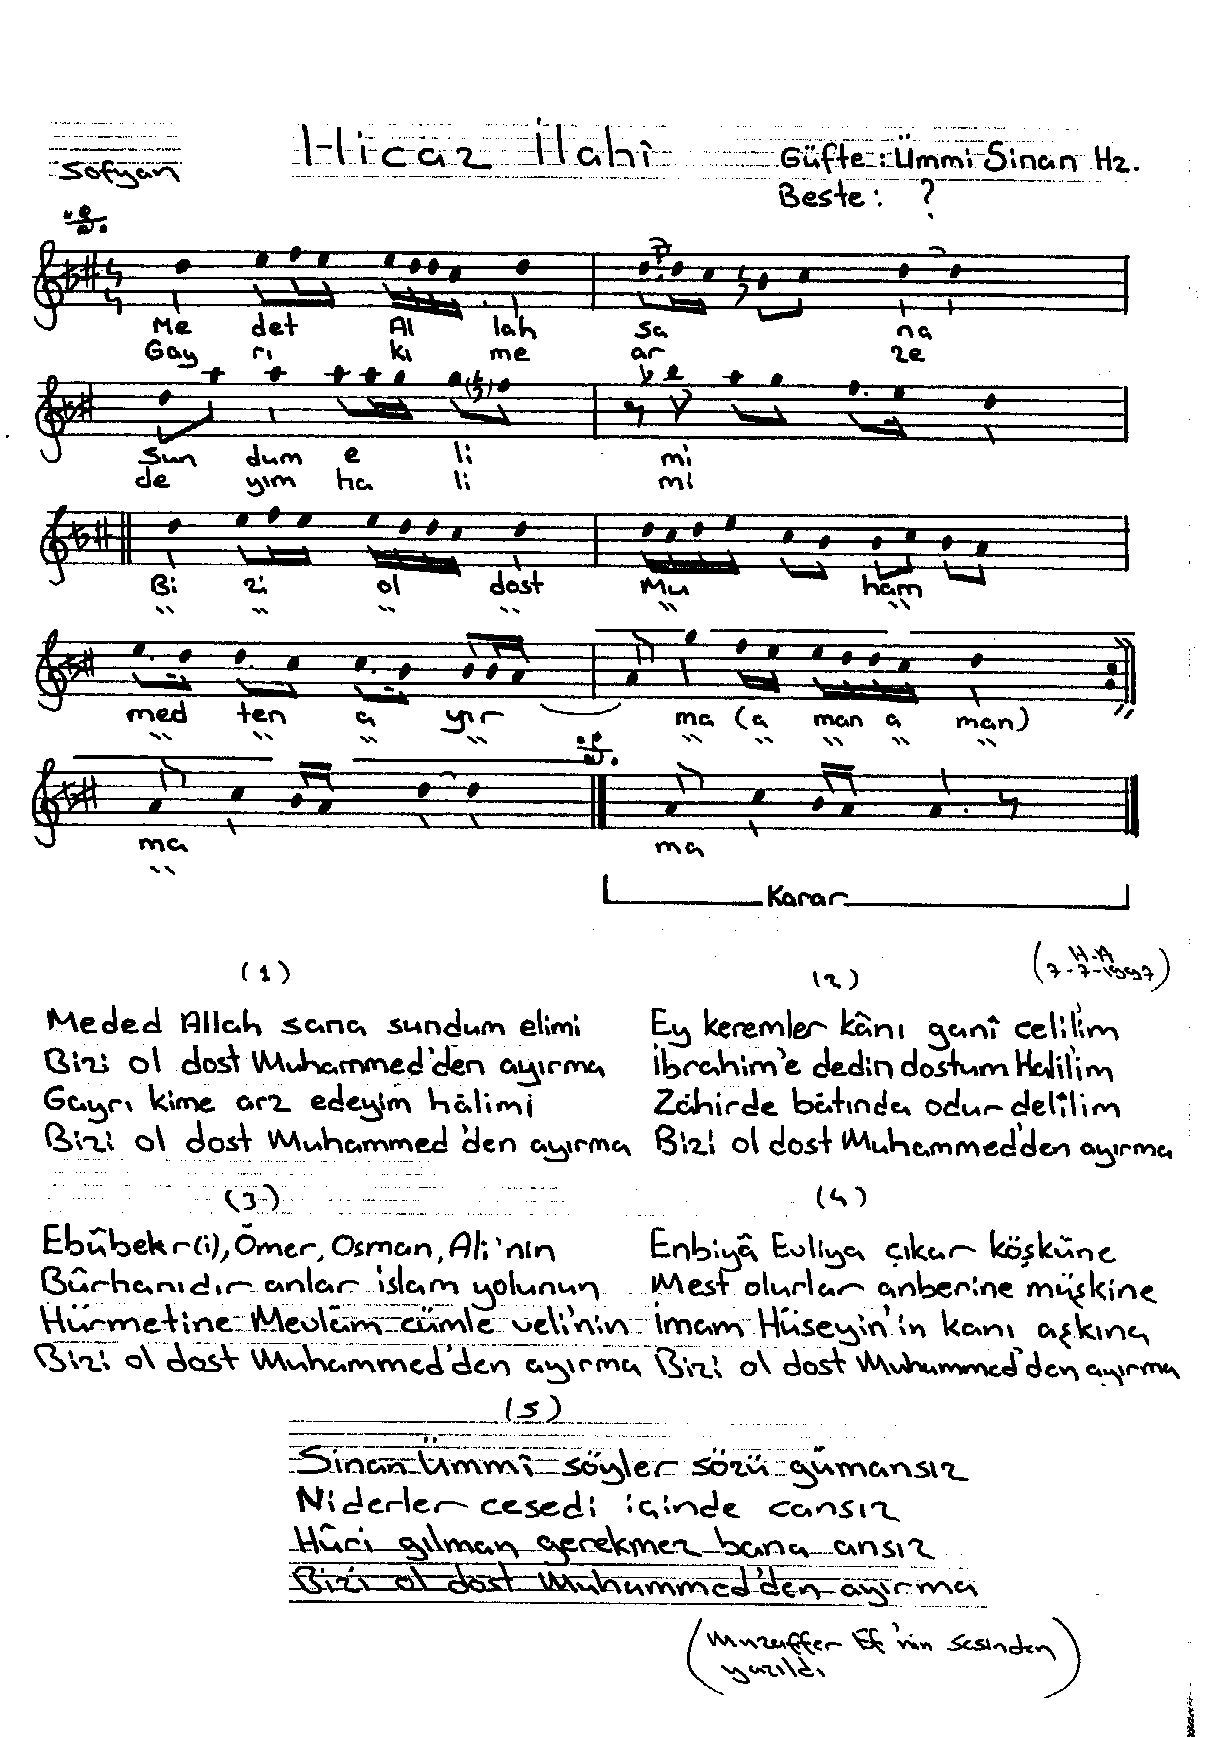 Sofyan
Hicaz İlahi
Güfte : Ümmi Sinan Hz.
Beste : ?
Me det Al lah sa na
Gay rı ki me ar ze
Sun dum e li mi
de yim ha li mi
Bi zi ol dost Mu ham
med ten a yır ma (a man a man)
ma ma
Karar
(H.A
7-7-1997)
(1)
Meded Allah sana sundum elimi
Bizi ol dost Muhammed'den ayırma
Gayrı kime arz edeyim hâlimi
Bizi ol dost Muhammed'den ayırma
(2)
Ey keremler kânı ganî celîl'im
İbrahim'e dedin dostum Halil'im
Zâhirde bâtında odur delîlim
Bizi ol dost Muhammed'den ayırma
(3)
Ebûbekr(i), Ömer, Osman, Ali'nin
Bûrhanıdır anlar islam yolunun
Hürmetine Mevlâm cümle veli'nin
Bizi ol dost Muhammed'den ayırma
(4)
Enbiyâ Evliya çıkar köşküne
Mest olurlar anberine müşkine
İmam Hüseyin'in kanı aşkına
Bizi ol dost Muhammed'den ayırma
(5)
Sinan Ümmî söyler sözü gümansız
Niderler cesedi içinde cansız
Hûri gılman gerekmez bana ansız
Bizi ol dost Muhammed'den ayırma
(Muzaffer Ef'nin sesinden
yazıldı)